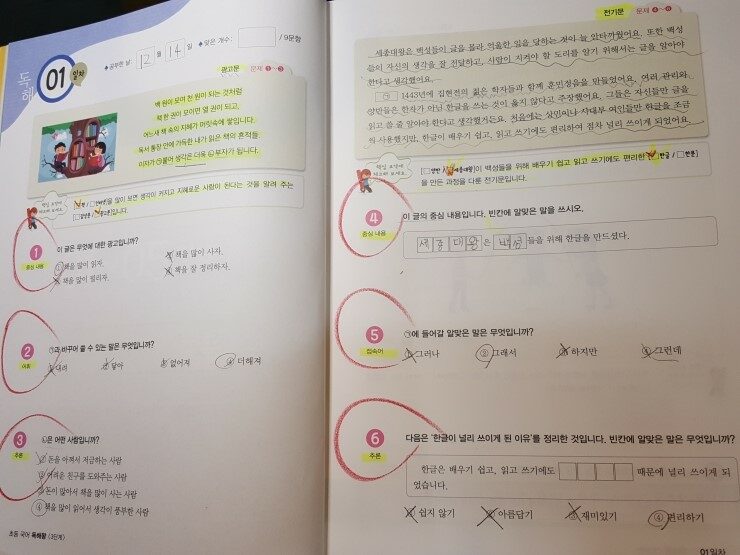 독해
01 일차
공부한 날: 12월 14일 맞은 개수: /9문항
광고문 문제 1~3
백 원이 모여 천 원이 되는 것처럼
책 한 권이 모이면 열 권이 되고,
어느새 책 속의 지혜가 머릿속에 쌓입니다.
독서 통장 안에 가득한 내가 읽은 책의 흔적들
이자가 ㉠붙어 생각은 더욱 ㉡부자가 됩니다.
을 많이 보면 생각이 커지고 지혜로운 사람이 된다는 것을 알려 주는
입니다.
1
중심 내용
이 글은 무엇에 대한 광고입니까?
① 책을 많이 읽자.
책을 많이 사자.
책을 많이 빌리자.
책을 잘 정리하자.
2
어휘
㉠과 바꾸어 쓸 수 있는 말은 무엇입니까?
내려
닳아
없어져
④ 더해져
3
추론
㉡은 어떤 사람입니까?
돈을 아껴서 저금하는 사람
어려운 친구를 도와주는 사람
돈이 많아서 책을 많이 사는 사람
④ 책을 많이 읽어서 생각이 풍부한 사람
초등 국어 독해왕 (3단계)
전기문 문제 4~6
세종대왕은 백성들이 글을 몰라 억울한 일을 당하는 것이 늘 안타까웠어요. 또한 백성
들이 자신의 생각을 잘 전달하고, 사람이 지켜야 할 도리를 알기 위해서는 글을 알아야
한다고 생각했어요.
㉠ 1443년에 집현전의 젊은 학자들과 함께 훈민정음을 만들었어요. 여러 관리와
양반들은 한자가 아닌 한글을 쓰는 것이 옳지 않다고 주장했어요. 그들은 자신들만 글을
읽고 쓸 줄 알아야 한다고 생각했거든요. 처음에는 상민이나 사대부 여인들만 한글을 조금
씩 사용했지만, 한글이 배우기 쉽고, 읽고 쓰기에도 편리하여 점차 널리 쓰이게 되었어요.
핵심 요약
체크해 보세요
[양반 / 세종대왕]이 백성들을 위해 배우기 쉽고 읽고 쓰기에도 편리한 [한글 / 한문]
을 만든 과정을 다룬 전기문입니다.
4
중심 내용
이 글의 중심 내용입니다. 빈칸에 알맞은 말을 쓰시오.
세종대왕은 백성들을 위해 한글을 만드셨다.
5
접속어
㉠에 들어갈 알맞은 말은 무엇입니까?
① 그러나
② 그래서
③ 하지만
④ 그런데
6
추론
다음은 '한글이 널리 쓰이게 된 이유'를 정리한 것입니다. 빈칸에 알맞은 말은 무엇입니까?
한글은 배우기 쉽고, 읽고 쓰기에도 때문에 널리 쓰이게 되
었습니다.
쉽지 않기
아름답기
재미있기
④ 편리하기
01일차